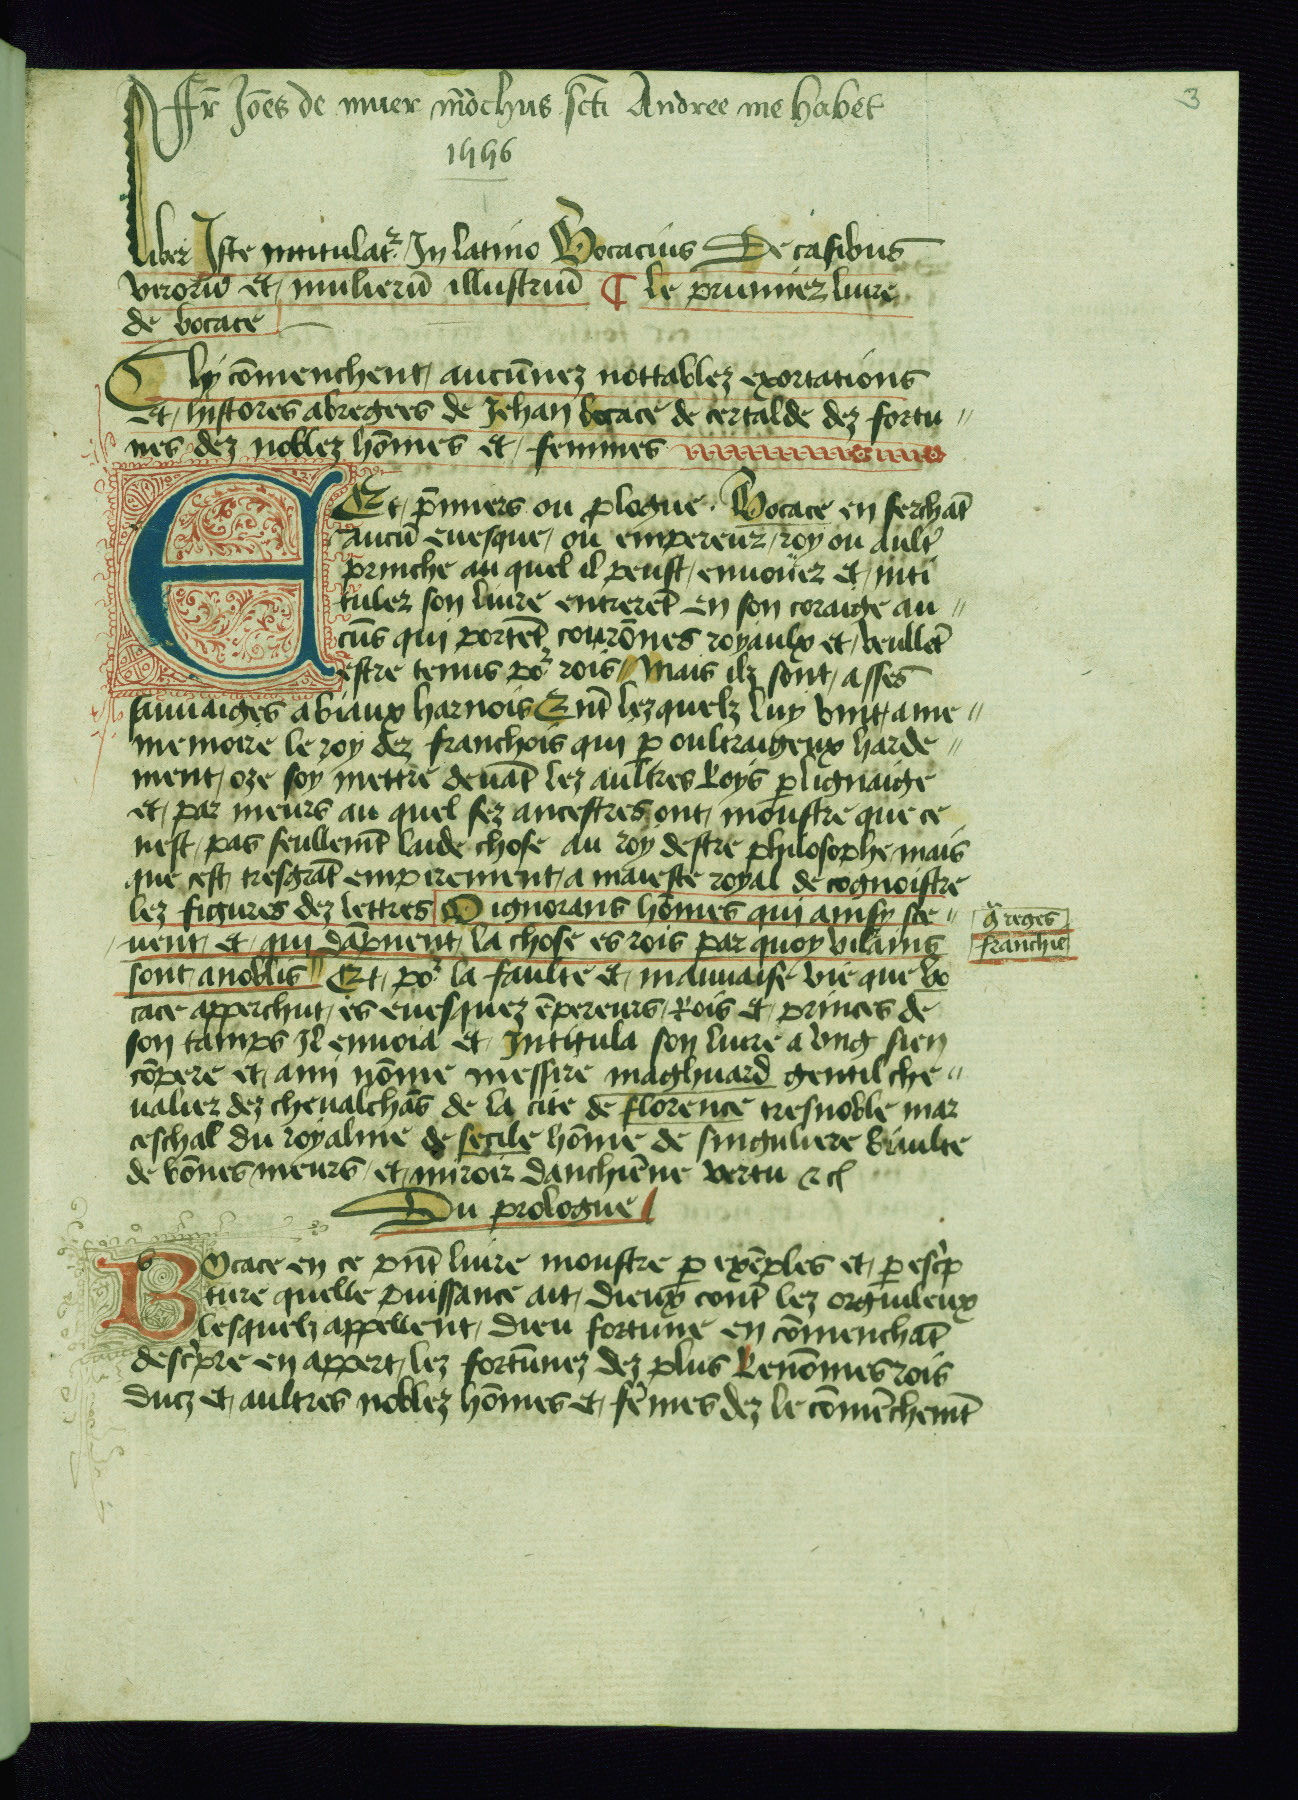 3
Fr̄ Joēs de muer mōchus scti Andree me habet
1446
Liber Iste intitulatr In latino Bocacius De casibus
virorū et mulierū illustriū ¶ le prumiez liure
de bocace
Chy cōmenchent aucūnez nottablez exortations
et histores abregees de Jehan bocace de certalde dez fortu〃
nes dez noblez hōmes et femmes
E Et p̄miers ou plogue. Bocace en serchāt
aucū euesque, ou empereur, roy ou ault̄
prinche au quel il peust enuoiiez et inti
tulez son liure entrerēt en son coraige au〃
cūs qui portēt courōnes royaulx et veullēt
estre tenus por rois // Mais ilz sont asses
sauuaiges a biaux harnois Ent̄ lezquelz luy vint a me〃
memoire le roy dez franchois qui p oultraigeux harde〃
ment oze soy mettre deuāt lez aultres Roys p lignaige
et par meurs au quel sez ancestres ont moustre que ce
nest pas seullemt̄ laide chose au roy destre philosophe mais
que cest tresgrāt empirement a maieste royal de cognoistre
lez figures dez lettres O ignorans hōmes qui ainsy sce〃
uent et qui dāpnent la chose es rois par quoy vilains
sont anoblis // Et por la faulte et mauuaise vie que bo
cace apperchut es euesquez ēpereurs, Rois et princes de
son tamps Il enuoia et Intitula son liure a vng sien
cōpere et amy nōme messire maghuard gentil che〃
ualier dez cheualchās de la cite de florence tresnoble mar
ceschal du royalme de secile hōme de singuliere biaulte
de bōnes meurs et miroir danchiēne vertu &c
ḡ reges
franchie
Du prologue
BOcace en ce pn̄t liure moustre p exēples et p escp
ture quelle puissance ait Dieux cont̄ lez orguileux
lesquelz appellent Dieu fortune en cōmenchāt
descpre en appert lez fortūnez dez plus Renōmes rois
ducz et aultres noblez hōmes et fēmes dez le cōmēchemt̄